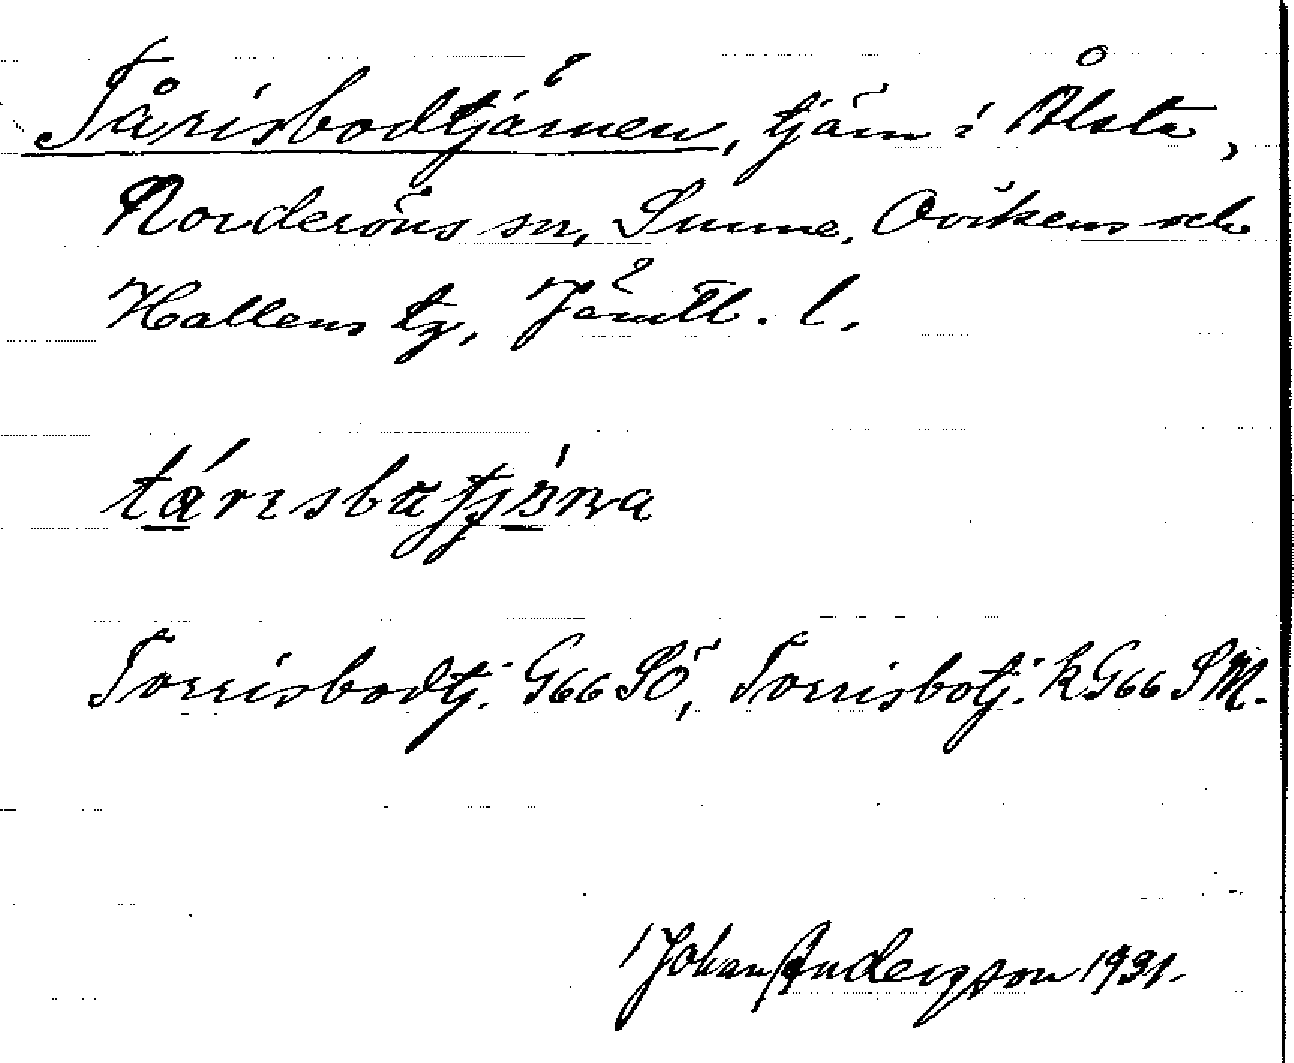 Tårisbodtjärnen, tjärn i Ålsta,
Norderöns sn, Sunne, Ovikens och
Hallens tg, Jämtl. l.
tárɪsbatjǿɳa
Torrisbodtj. G66 SÖ, Torrisbotj. k G66 SM.
Johan Anderzson 1931.